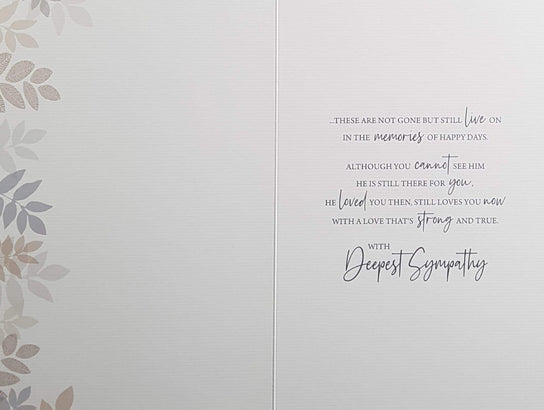 ...THESE ARE NOT GONE BUT STILL live ON
IN THE memories OF HAPPY DAYS.
ALTHOUGH YOU cannot SEE HIM
HE IS STILL THERE FOR you,
HE loved YOU THEN, STILL LOVES YOU now
WITH A LOVE THAT'S strong AND TRUE.
WITH
Deepest Sympathy